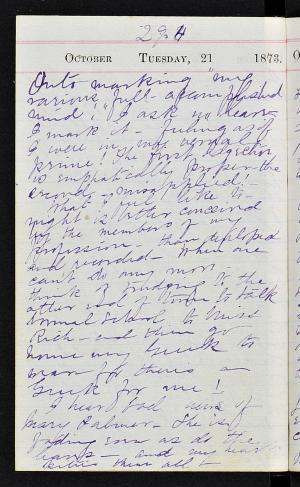 294
OCTOBER TUESDAY, 21 1873.
Onto marking "my
various, full - accomplished
mind"! I ask no leave
I mark it - feeling as if
I were in my normal
prime! The first
is emphatically proper - the
second - misapplied -
What I feel like to-
night is better conceived
by the members of my
profession - than
and recorded - When one
can't do any more
think of trudging to the
other end of town to talk
Normal School, to Miss
Rich - and then go
home my Greek to
for there's no
Greek for me!
I hear bad news of
Mary Palmer - She is
fading soon as do the
leaves - and my heart
them all -